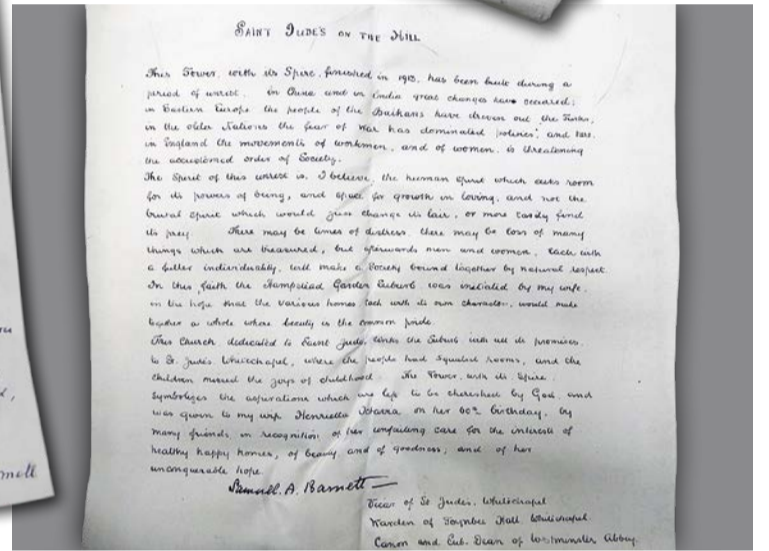 SAINT JUDE'S ON THE HILL
This Tower, with its Spire, finished in 1913, has been built during a
period of unrest. in China and in India great changes have occured;
in Eastern Europe the people of the Balkans have driven out the Turks,
in the older Nations the fear of war has dominated politics; and here
in England the movements of workmen, and of women, is threatening
the accustomed order of Society.
The Spirit of this unrest is, I believe, the human spirit which asks room
for its powers of being, and space for growth in loving, and not the
brutal spirit which would just change its lair, or more easily find
its prey. There may be times of distress, there may be loss of many
things which are treasured, but afterwards men and women, each with
a fuller individuality, will make a Society bound together by natural respect.
In this faith the Hampstead Garden Suburb was initiated by my wife,
in the hope that the various homes, each with its own character, would make
together a whole where beauty is the common pride.
This Church, dedicated to Saint Jude, links the Suburb with all its promises
to St. Jude's Whitechapel, where the people had squalid rooms, and the
children missed the joys of childhood. The Tower, with its Spire,
symbolizes the aspirations which are left to be cherished by God, and
was given to my wife Henrietta Octavia on her 60th birthday, by
many friends, in recognition of her unfailing care for the interests of
healthy happy homes, of beauty and of goodness; and of her
unconquerable hope.
Samuel. A. Barnett
Vicar of St Jude's, Whitechapel
Warden of Toynbee Hall Whitechapel
Canon and Sub. Dean of Westminster Abbey.